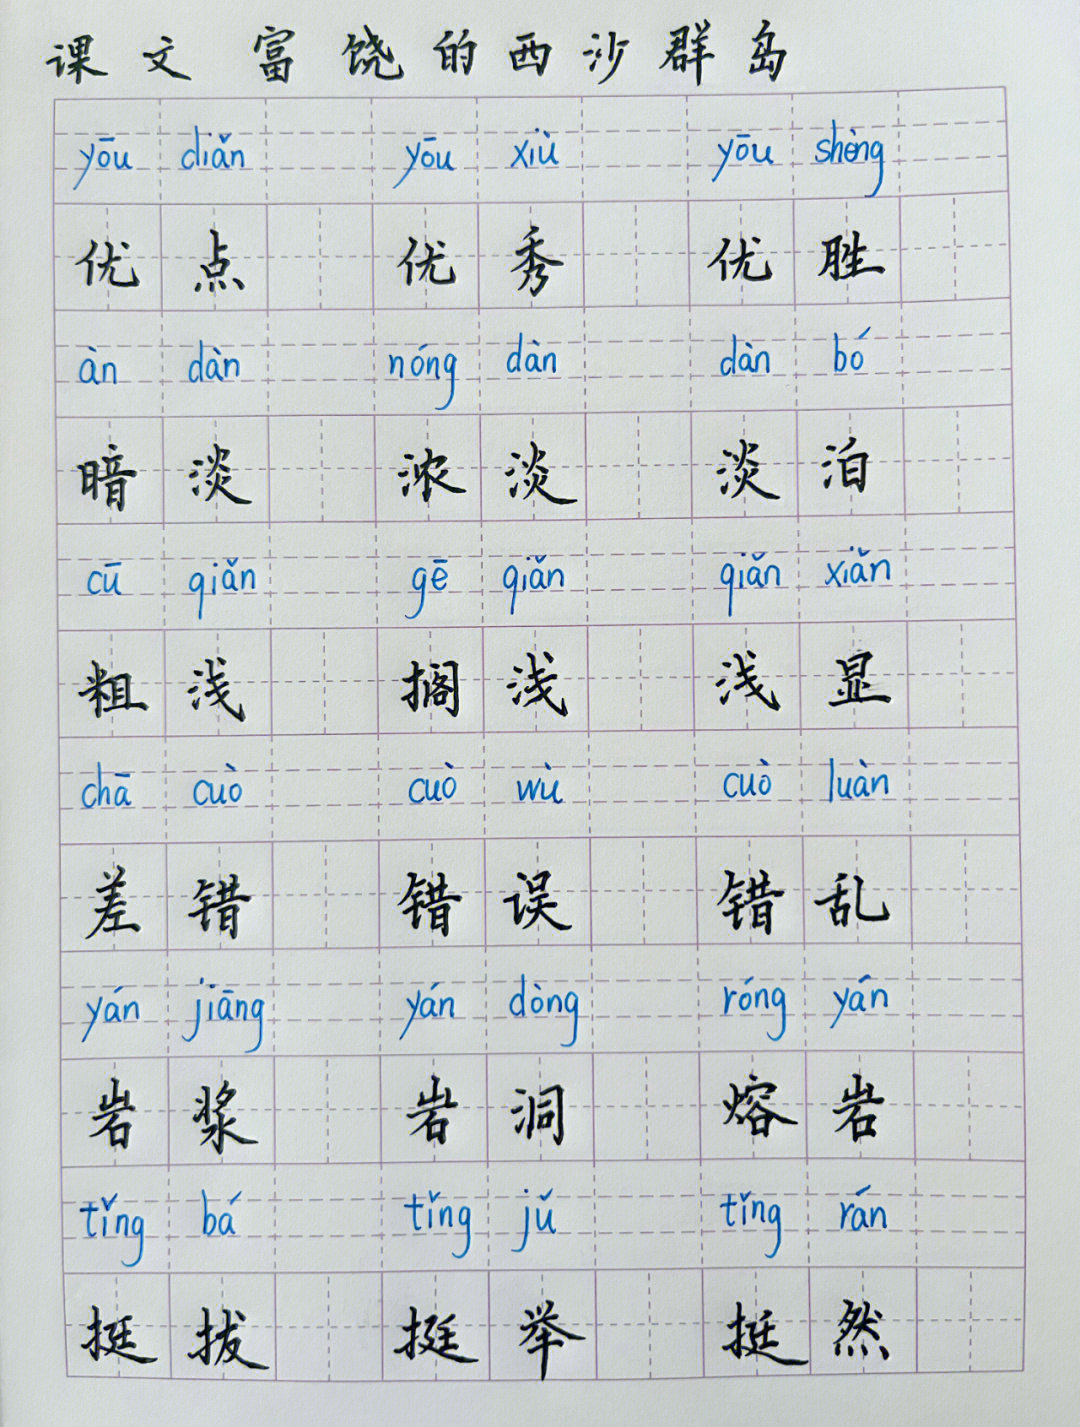 课文 富饶的西沙群岛
yōu diǎn yōu xiù yōu shèng
优点 优秀 优胜
àn dàn nóng dàn dàn bó
暗淡 浓淡 淡泊
cū qiǎn gē qiǎn qiǎn xiǎn
粗浅 搁浅 浅显
chā cuò cuò wù cuò luàn
差错 错误 错乱
yán jiāng yán dòng róng yán
岩浆 岩洞 熔岩
tǐng bá tǐng jǔ tǐng rán
挺拔 挺举 挺然